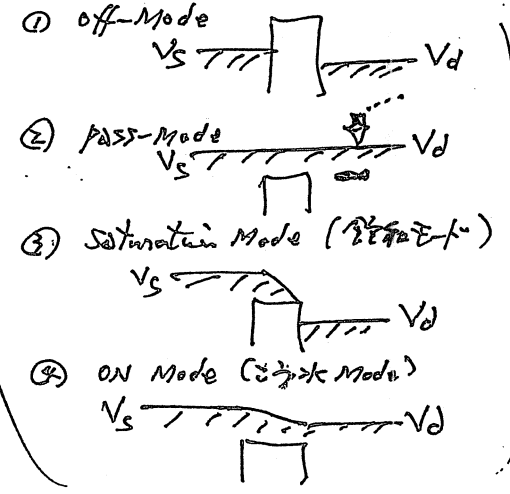 ① Off-Mode
Vs Vd
② pass-Mode
Vs Vd
③ Saturation Mode (飽和モード)
Vs Vd
④ ON Mode (こう水 Mode)
Vs Vd